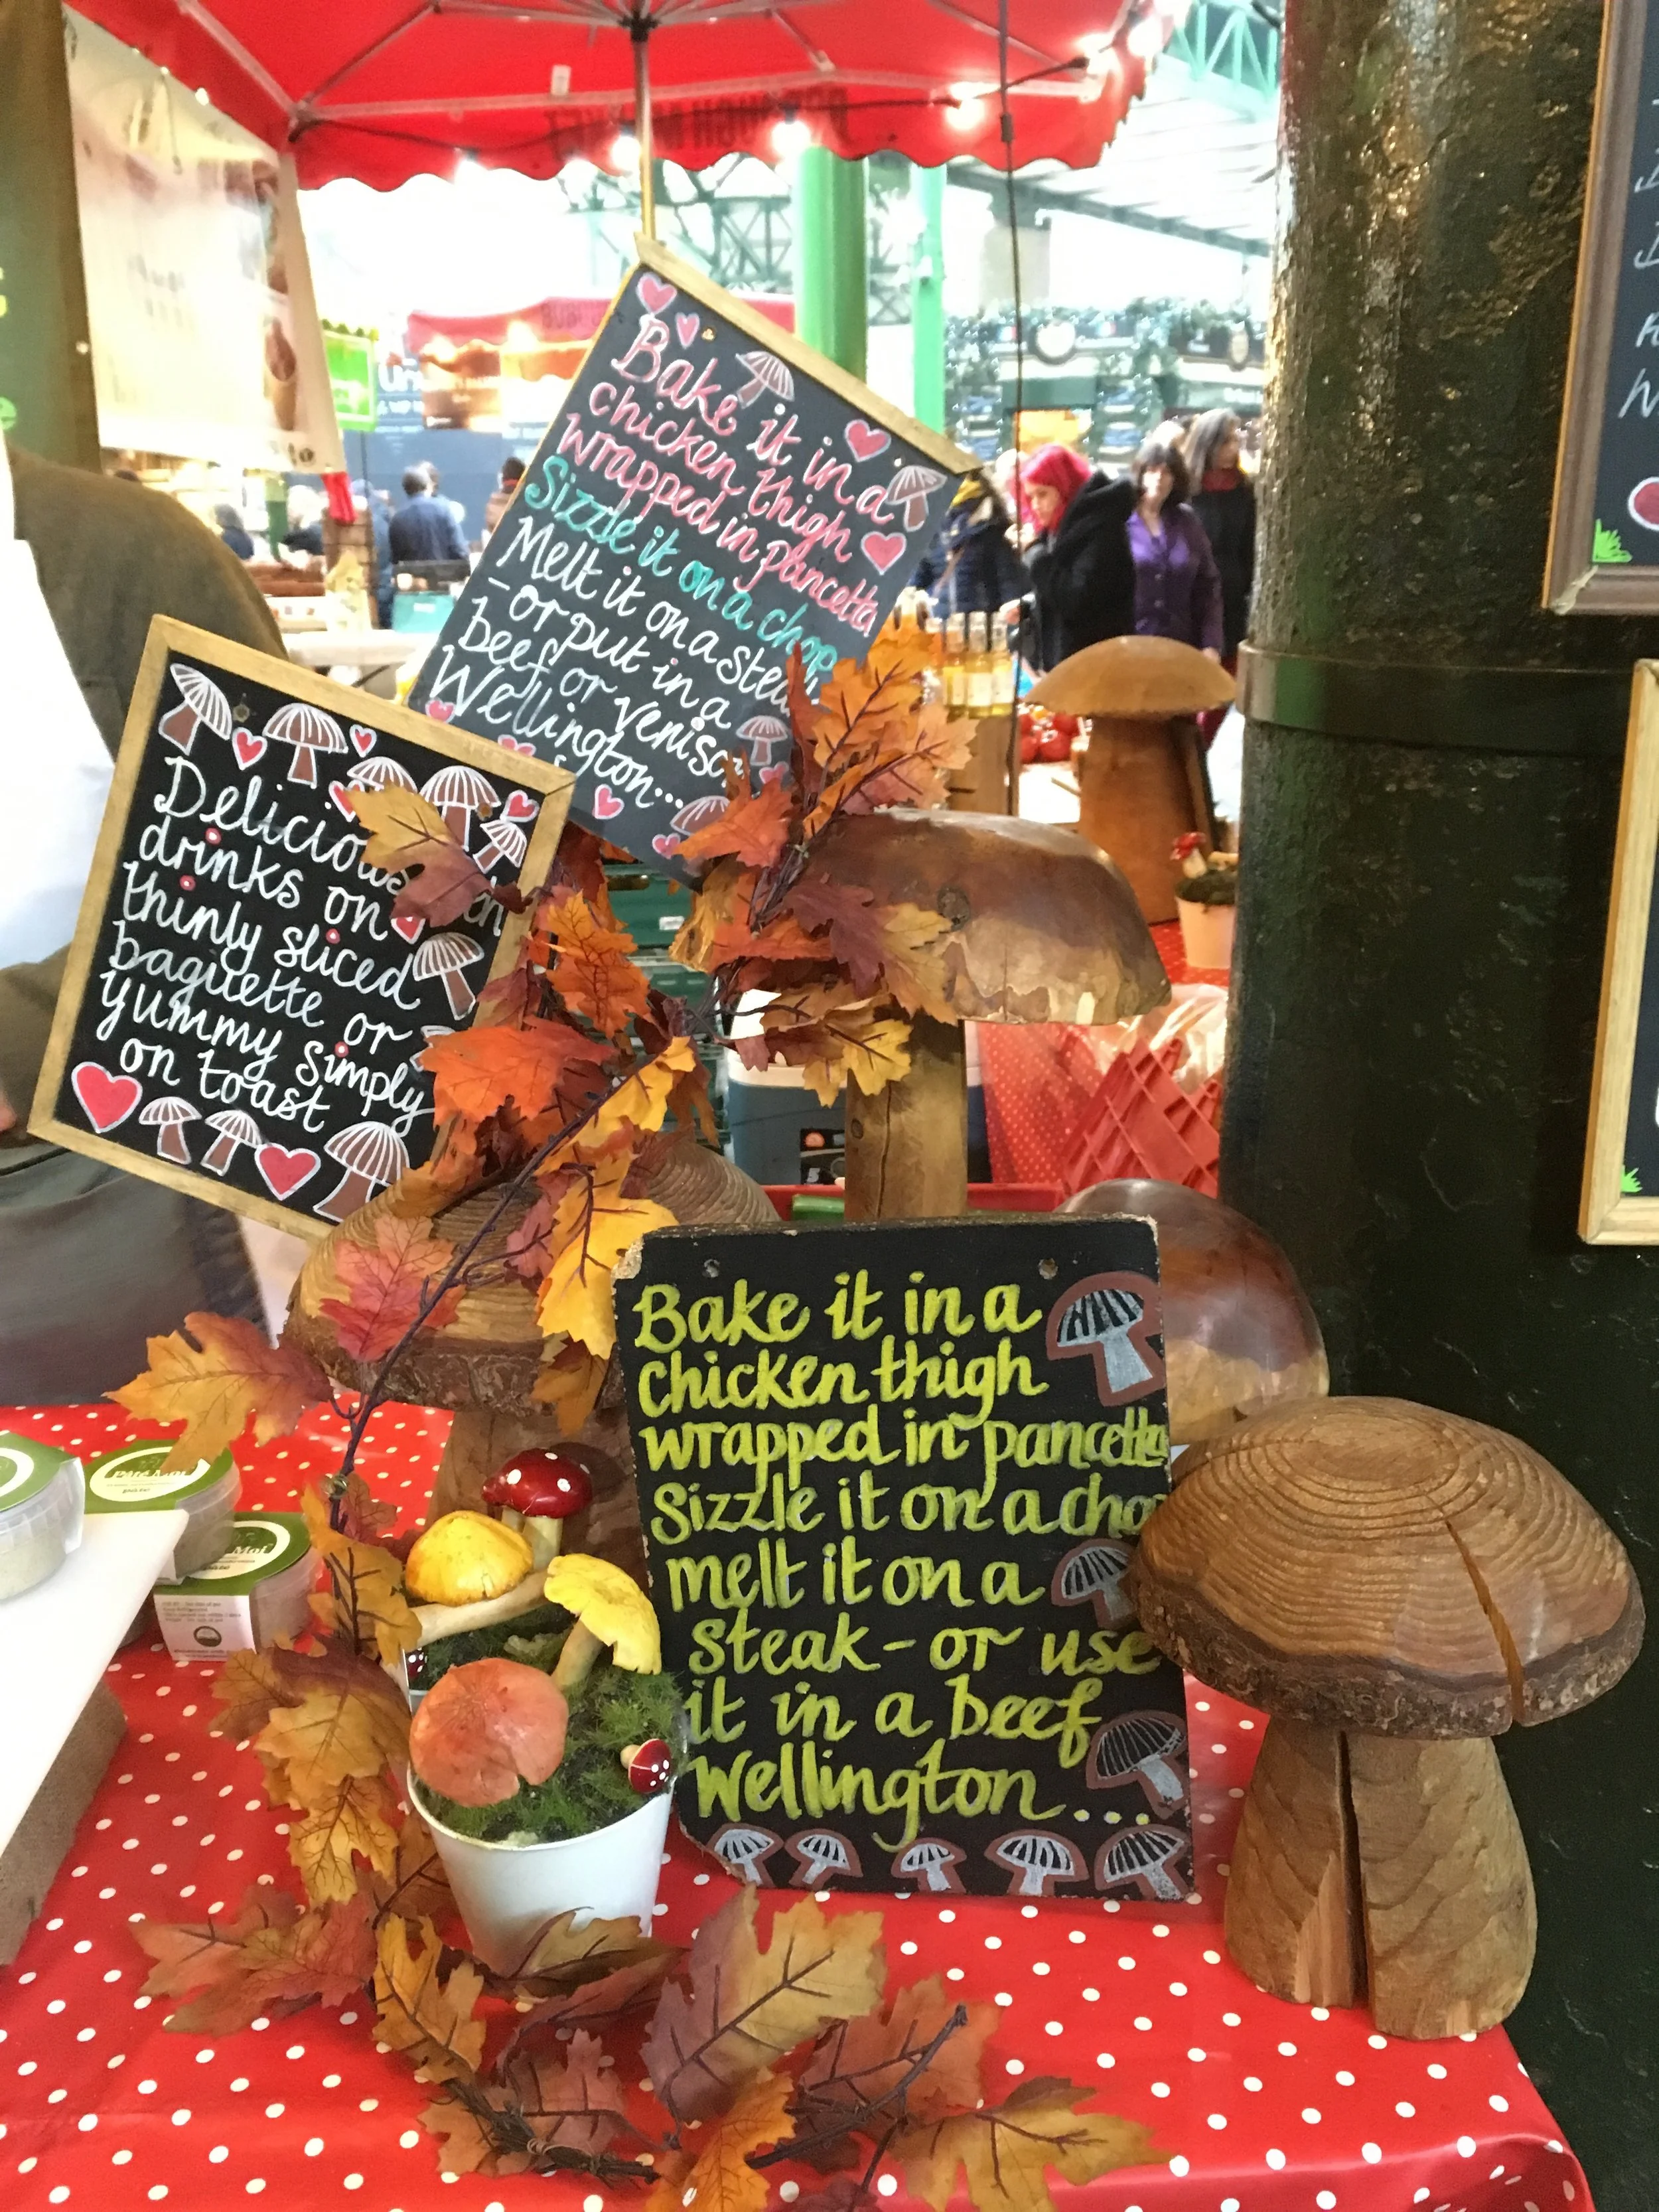 Bake it in a
chicken thigh
wrapped in pancetta
Sizzle it on a chop
Melt it on a steak
- or put in a
beef or venison
Wellington...
Delicious
drinks on
thinly sliced
baguette or
yummy simply
on toast
Bake it in a
chicken thigh
wrapped in pancetta
Sizzle it on a chop
melt it on a
steak - or use
it in a beef
Wellington....
Pâté Moi
Moi